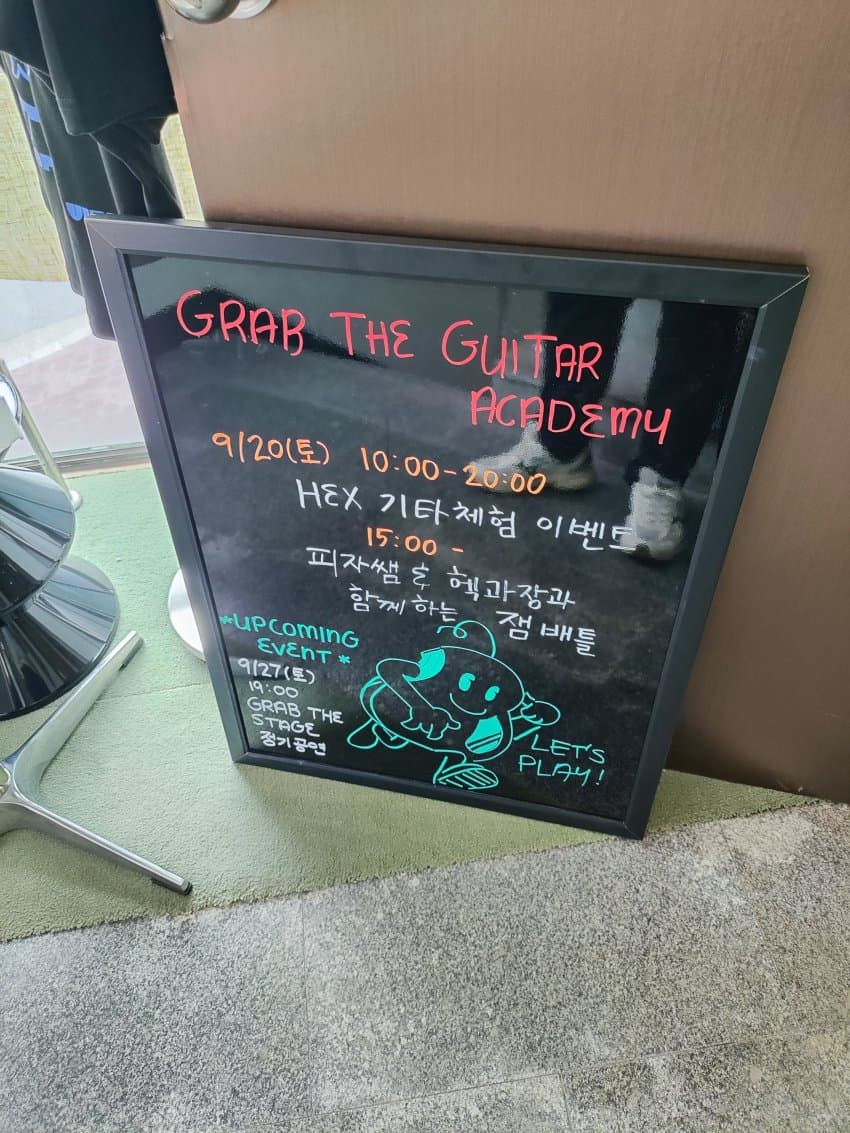 GRAB THE GUITAR
ACADEMY
9/20(토) 10:00-20:00
HEX 기타체험 이벤트
15:00 -
피자쌤 & 헥과장과
함께하는 잼배틀
*UPCOMING
EVENT*
9/27(토)
19:00
GRAB THE
STAGE
정기공연
LET'S
PLAY!